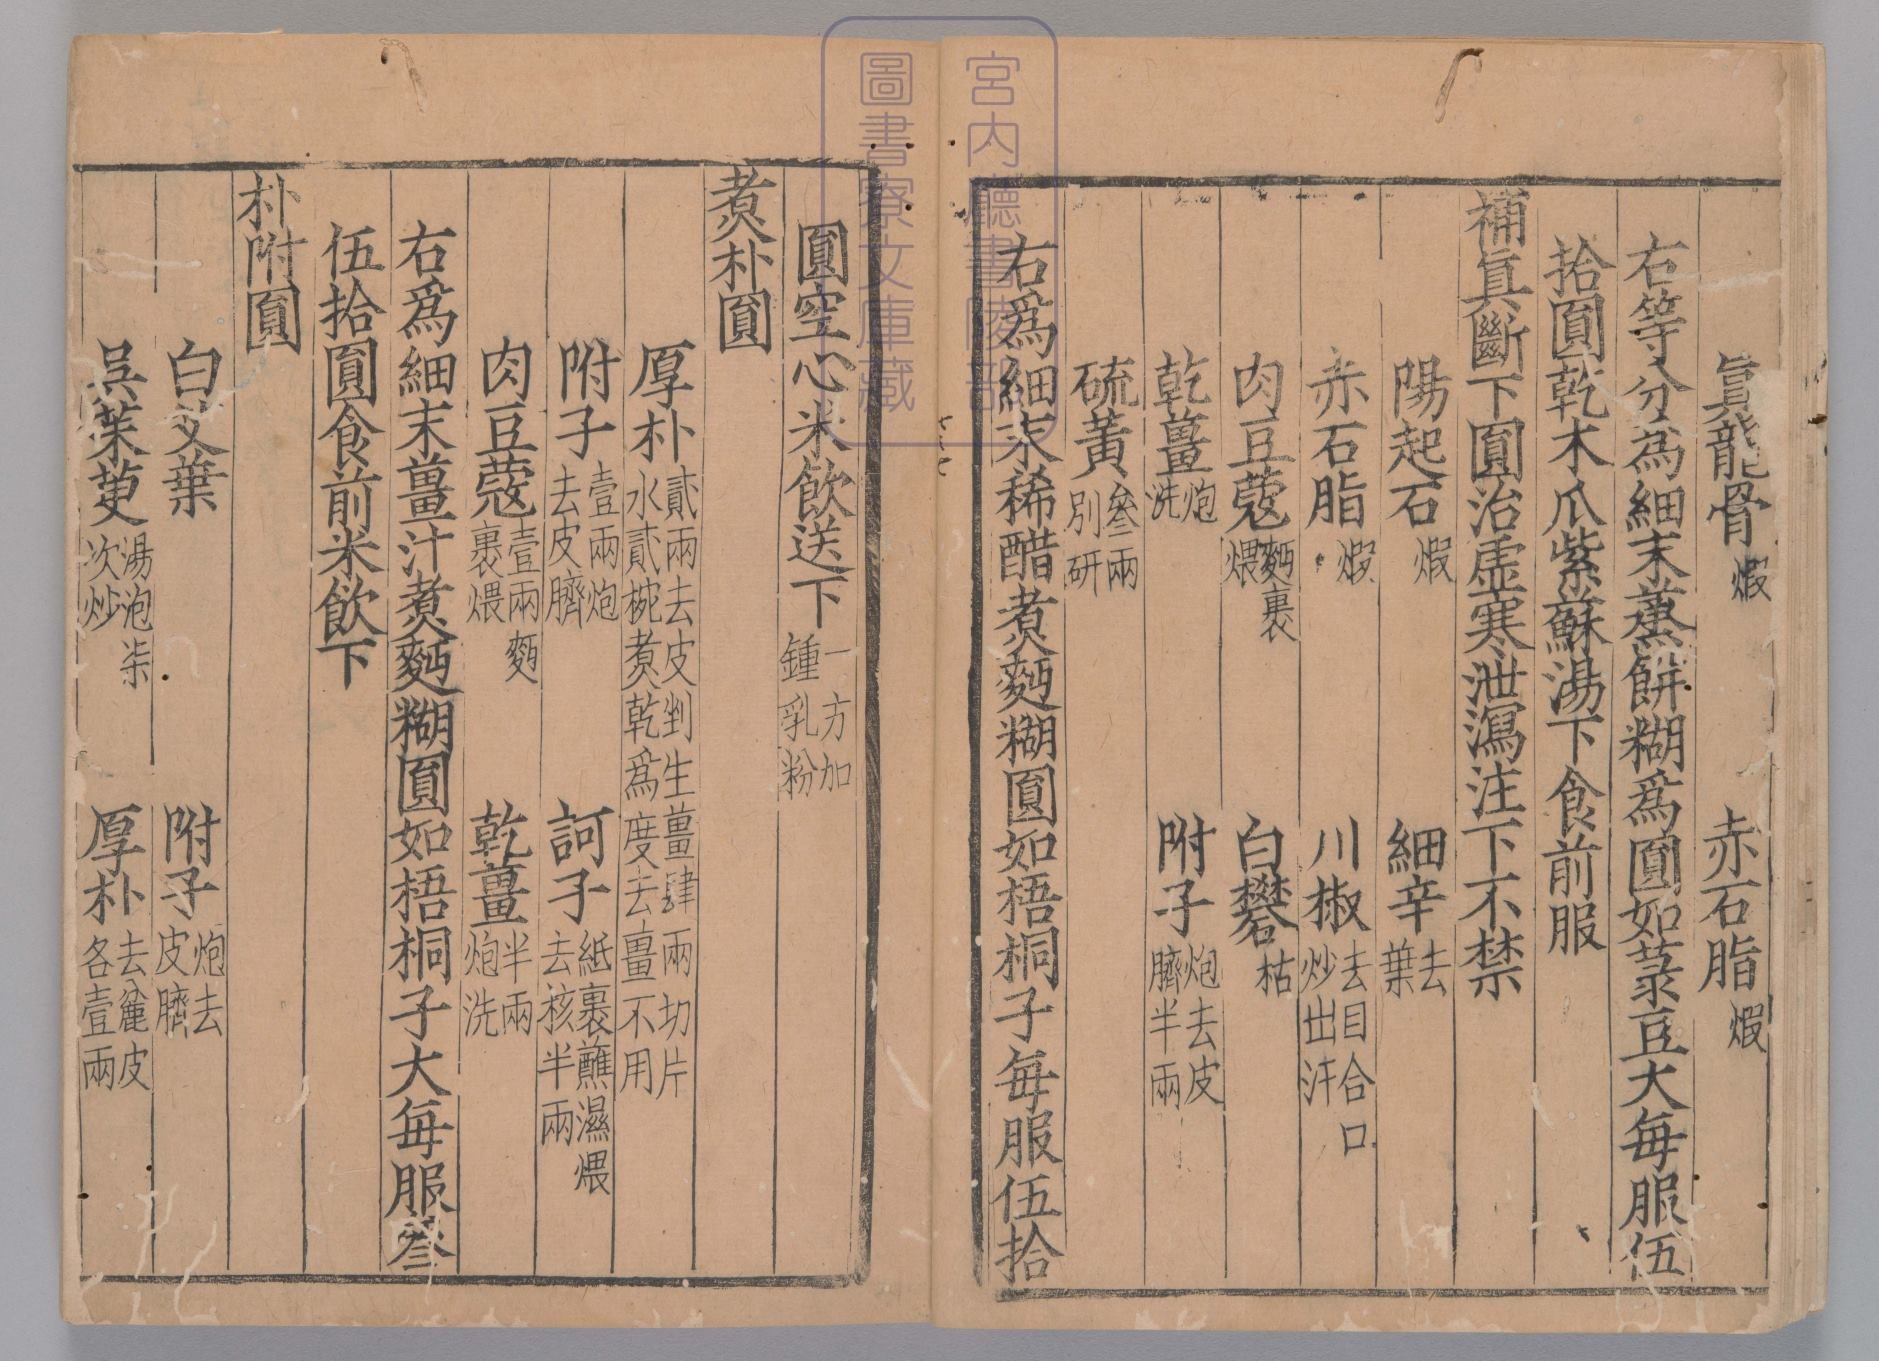 眞龍骨煅　赤石脂煅
右等分為細末蒸餅糊爲圓如菉豆大每服伍
拾圓乾木瓜紫蘇湯下食前服
補眞斷下圓治虛寒泄瀉注下不禁
陽起石煅　細辛去葉
赤石脂煅　川椒去目合口炒出汗
肉豆蔻麪裹煨　白礬枯
乾薑炮洗　附子炮去皮臍半兩
硫黃叄兩別研
右爲細末稀醋煮麪糊圓如梧桐子每服伍拾
圓空心米飲送下一方加鍾乳粉
煮朴圓
厚朴貳兩去皮剉生薑肆兩切片水貳椀煮乾爲度去薑不用
附子壹兩炮去皮臍　訶子紙裹蘸濕煨去核半兩
肉豆蔻壹兩麪裹煨　乾薑半兩炮洗
右爲細末薑汁煮麪糊圓如梧桐子大每服叄
伍拾圓食前米飲下
朴附圓
白艾葉　附子炮去皮臍
吳茱萸湯泡柒次炒　厚朴去麄皮各壹兩
宮内廳書陵部
圖書寮文庫藏